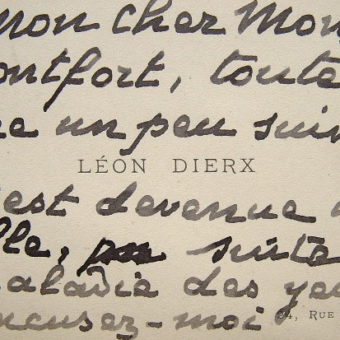 mon cher Mon
ontfort, toute
e un peu suiv
LÉON DIERX
est devenue
lle, suite
maladie des yeu
xcusez-moi
4, RUE